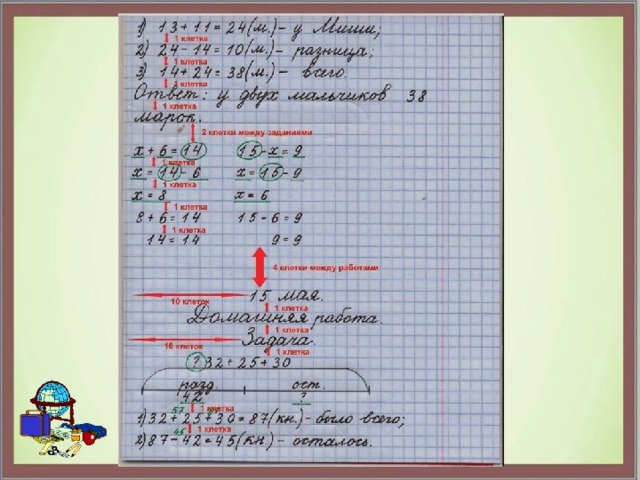 1) 13 + 11 = 24 (м.) – у Миши;
1 клетка
2) 24 – 14 = 10 (м.) – разница;
1 клетка
3) 14 + 24 = 38 (м.) – всего.
1 клетка
Ответ: у двух мальчиков 38
1 клетка
марок.
2 клетки между заданиями
x + 6 = 14 15 - x = 9
1 клетка
x = 14 - 6 x = 15 - 9
1 клетка
x = 8 x = 6
1 клетка
8 + 6 = 14 15 - 6 = 9
1 клетка
14 = 14 9 = 9
4 клетки между работами
10 клеток 15 мая.
1 клетка
Домашняя работа.
1 клетка
16 клеток Задача.
1 клетка
? 32 + 25 + 30
разд. ост.
42 ?
57 1 клетка
1) 32 + 25 + 30 = 87 (кн.) - было всего;
45 1 клетка
2) 87 – 42 = 45 (кн) – осталось.